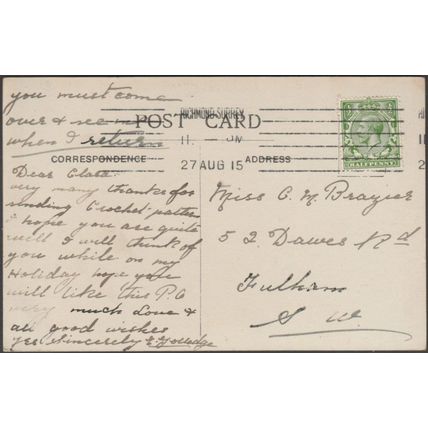 you must come
over & see me
when I return
POST CARD
RICHMOND SURREY
11. PM
27 AUG 15
HALFPENNY
CORRESPONDENCE
ADDRESS
Dear Clara
very many thanks for
sending Crochet pattern
I hope you are quite
well I will think of
you while on my
Holiday hope you
will like this P.C
very much Love &
all good wishes
yrs Sincerely
Miss C. M. Brazier
52 Dawes Rd
Fulham
S W.